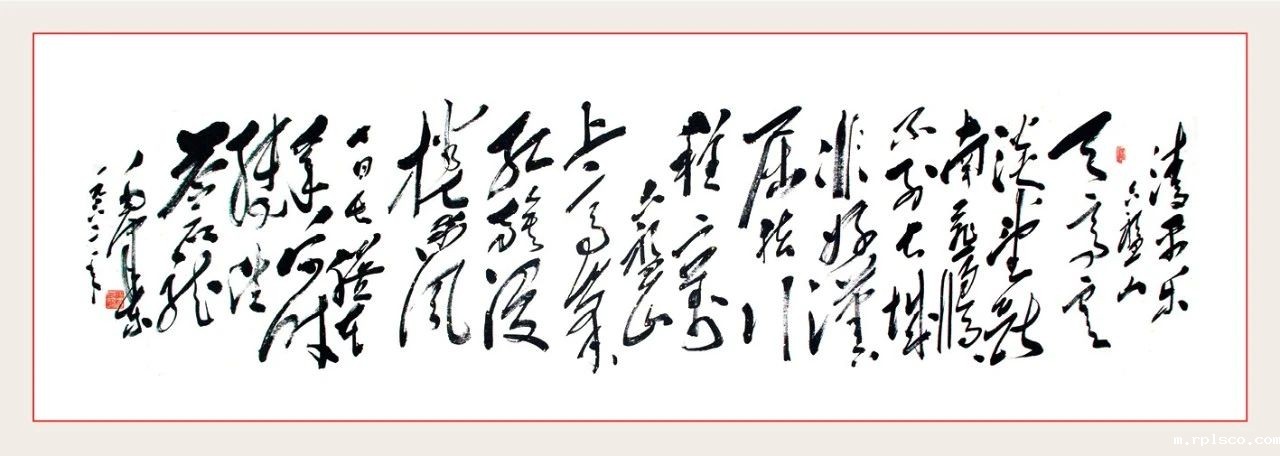 清平乐
六盘山
天高云
淡望断
南飞雁
不到长城
非好汉
屈指行
程二万
六盘山
上高峰
红旗漫
捲西风
今日长缨在
手何时
缚住
苍龙
毛泽东
一九六一年
m.rplsco.com